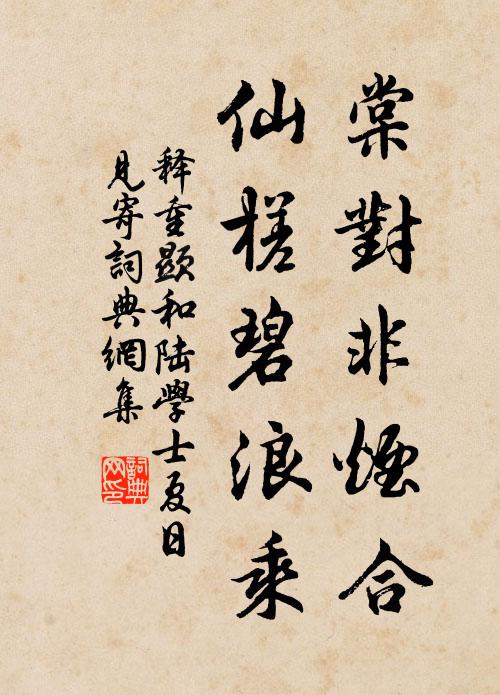 棠對非煙合
仙槎碧浪乘
釋重顯和陸學士夏日
見寄詞典網集
詞典网印